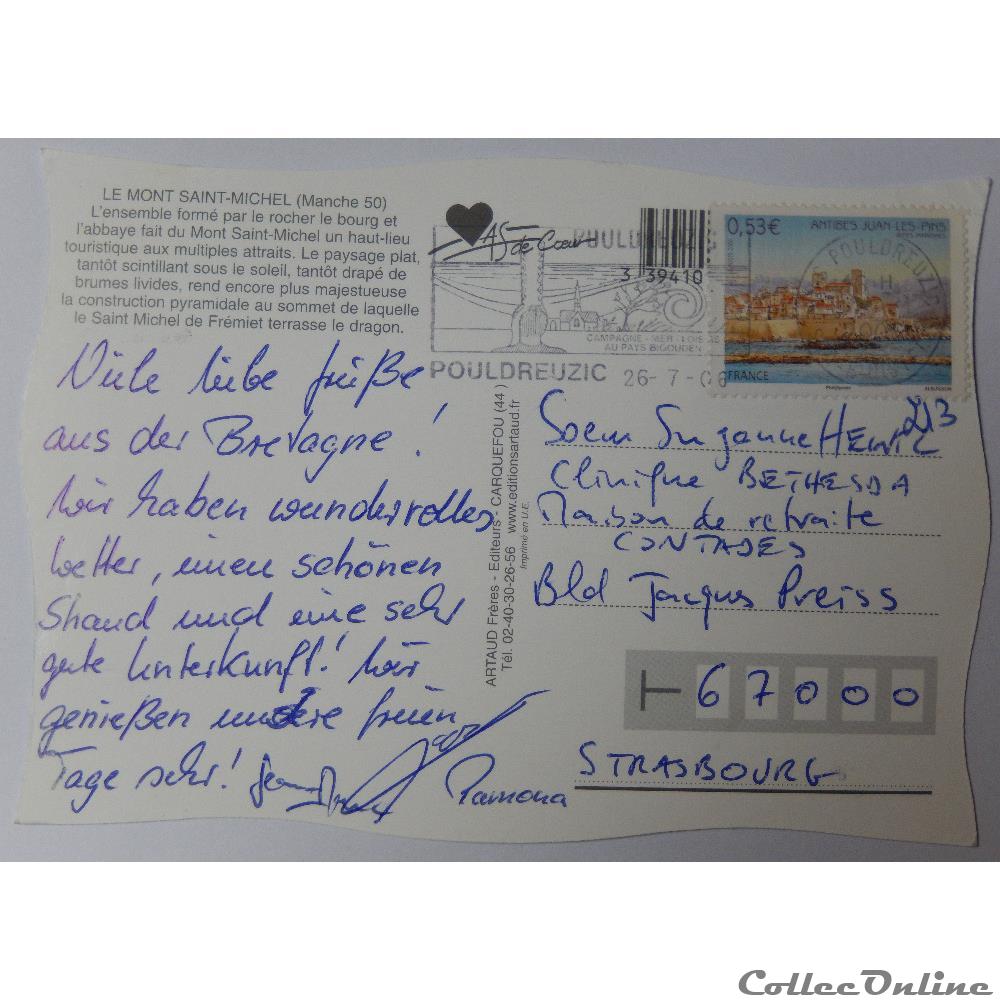 LE MONT SAINT-MICHEL (Manche 50)
L'ensemble formé par le rocher le bourg et
l'abbaye fait du Mont Saint-Michel un haut-lieu
touristique aux multiples attraits. Le paysage plat,
tantôt scintillant sous le soleil, tantôt drapé de
brumes livides, rend encore plus majestueuse
la construction pyramidale au sommet de laquelle
le Saint Michel de Frémiet terrasse le dragon.
Viele liebe Grüße
aus der Bretagne!
Wir haben wundervolles
Wetter, einen schönen
Strand und eine sehr
gute Unterkunft! Wir
genießen unsere freien
Tage sehr!
Ramona
As de Cœur
POULDREUZIC
3 39410
CAMPAGNE - MER - LOISIRS
AU PAYS BIGOUDEN
POULDREUZIC 26-7-06
0,53€ ANTIBES JUAN-LES-PINS
POULDREUZIC
FRANCE
ARTAUD Frères - Editeurs - CARQUEFOU (44)
Tél. 02-40-30-26-56 www.editionsartaud.fr
Imprimé en U.E.
213
Soeur Suzanne
Clinique BETHESDA
Maison de retraite
CONTADES
Bld Jacques Preiss
67000
STRASBOURG
CollecOnline